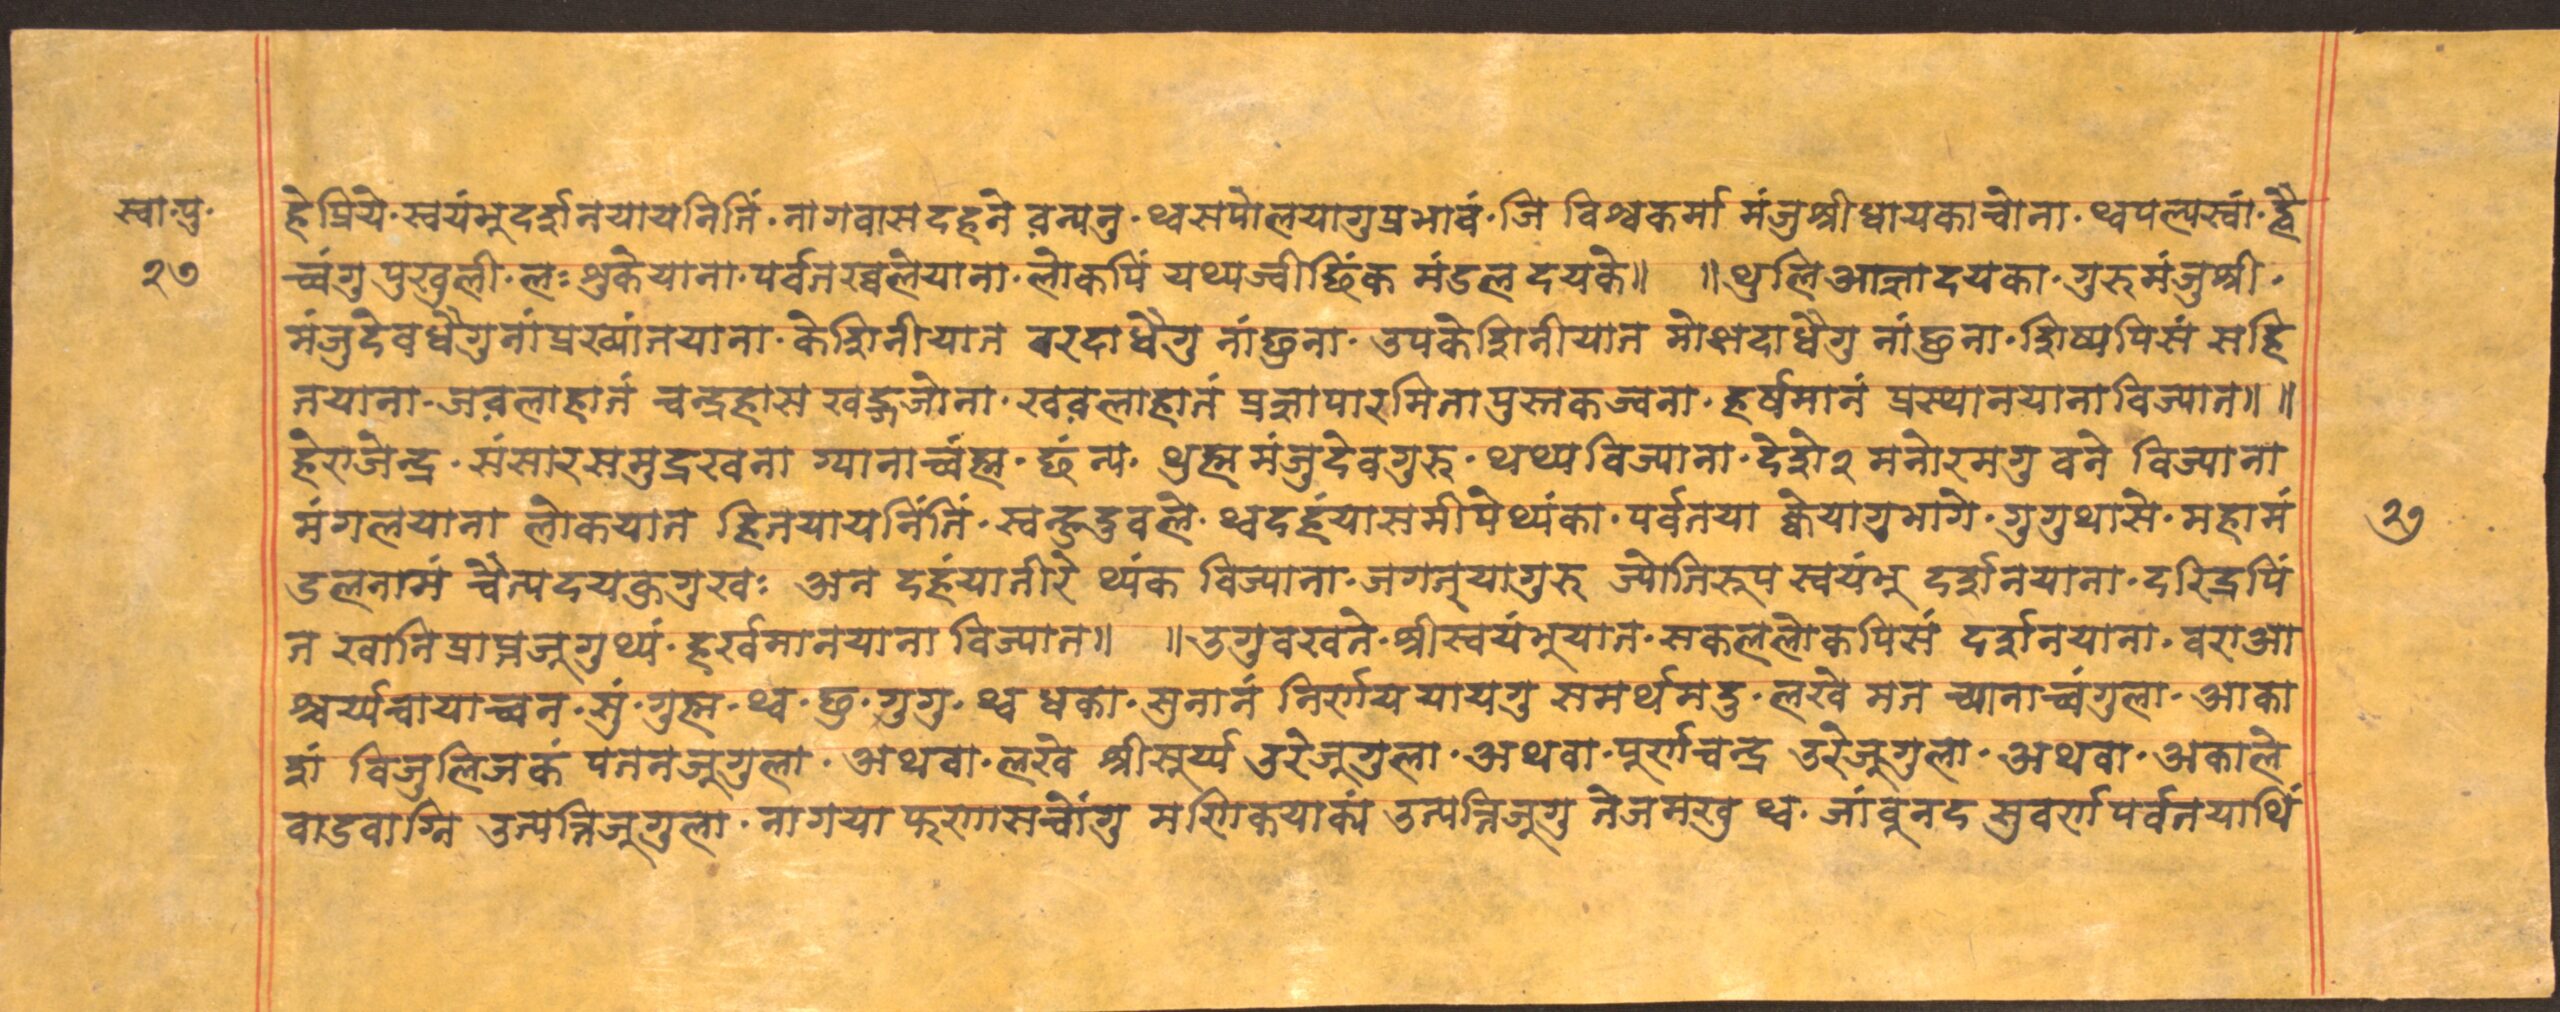 स्वा·पु·
२७
हेप्रिये·स्वयंभुदर्शनयायनितिं·नागवासदहने व़न्यनु·थ्वसपोलयागुप्रभावं·जि विश्वकर्मा मंजुश्रीधायकाच्वोना·थ्वपल्यस्वां·ह्वै
च्वंगु पुखुली·लः शुकेयाना·पर्वतखब्वलेयाना·लोकपिं यथ्यज्वीछिंक मंडल दयके॥ ॥थुलि आज्ञादयका·गुरुमंजुश्री·
मंजुदेवधैगुनांप्रख्यांतयाना·केशिनीयात वरदाधैगु नांछुना·उपकेशिनीयात मोक्षदाधैगु नांछुना·शिष्यपिसं सहि
तयाना·जव़लाहातं चन्द्रहास खड्गजोना·खव़लाहातं प्रज्ञापारमिता पुस्तकज्वना·हर्षमानं प्रस्थानयानाविज्यात॥ ॥
हेराजेन्द्र·संसारसमुद्रखना ग्यानाच्वंह्म·छं त्य·थुह्म मंजुदेवगुरु·थथ्यविज्याना·देशे२ मनोरमगु वने विज्याना
मंगलयाना लोकयात हितयायनिंतिं·स्वन्हुदुवले·थ्वदहंयासमीपेथ्यंका·पर्वतया क्वेयागुभागे·गुगुथासे·महामं
डलनामं चैत्यदयकुगुखः अन दहंयातीरे थ्यंक विज्याना·जगत्‌यागुरु ज्योतिरूप स्वयंभु दर्शनयाना·दरिद्रपिं
त खानि प्राप्तजूगुथ्यं·हर्खमानयाना विज्यात॥ ॥उगुवखते·श्रीस्वयंभुयात·सकललोकपिसं दर्शनयाना·वराआ
श्चर्य्यचायाच्वन·सुं·गुह्म·थ्व·छु·गुगु·थ्व धका·सुनानं निर्णय यायगु समर्थमदु·लखे मत च्यानाच्वंगुला·आका
शं विजुलिजकं पतनजूगुला·अथवा·लखे श्रीसूर्य्य उरेजूगुला·अथवा·पूर्णचन्द्र उरेजूगुला·अथवा·अकाले
वाडवाग्नि उत्पन्निजूगुला·नागया फणासच्वोंगु मणिकयाक्यं उत्पन्निजूगु तेजमखु थ्व·जांबूनद सुवर्ण पर्वतयाथिं
२७